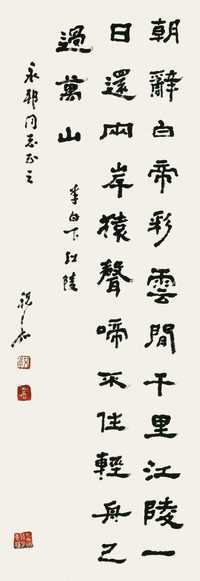 朝辭白帝彩雲間千里江陵一
日還兩岸猿聲啼不住輕舟已
過萬山
李白下江陵
永郅同志正之